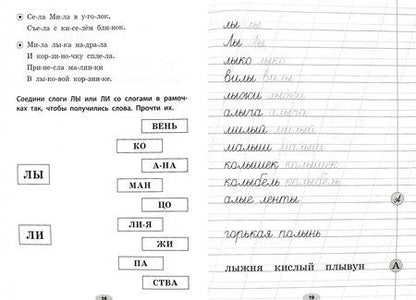 Се-ла Ми-ла в у-го-лок.
Съе-ла с ки-се-лём бли-нок.
Ми-ла лы-ка на-дра-ла
И кор-зи-ноч-ку спле-ла.
При-не-сла ма-лин-ки
В лы-ко-вой кор-зин-ке.
Соедини слоги ЛЫ или ЛИ со слогами в рамоч-
ках так, чтобы получились слова. Прочти их.
ВЕНЬ
КО
А-НА
ЛЫ
МАН
ЦО
ЛИ
ЛИ-Я
ЖИ
ПА
СТВА
38
лы лы
Лы Лы
лыко лыко
вилы вилы
лыжи лыжи
алыча алыча
милый милый
малыш малыш
колышек колышек
колыбель колыбель
алые ленты
горькая полынь
лыжня кислый плывун
А
39